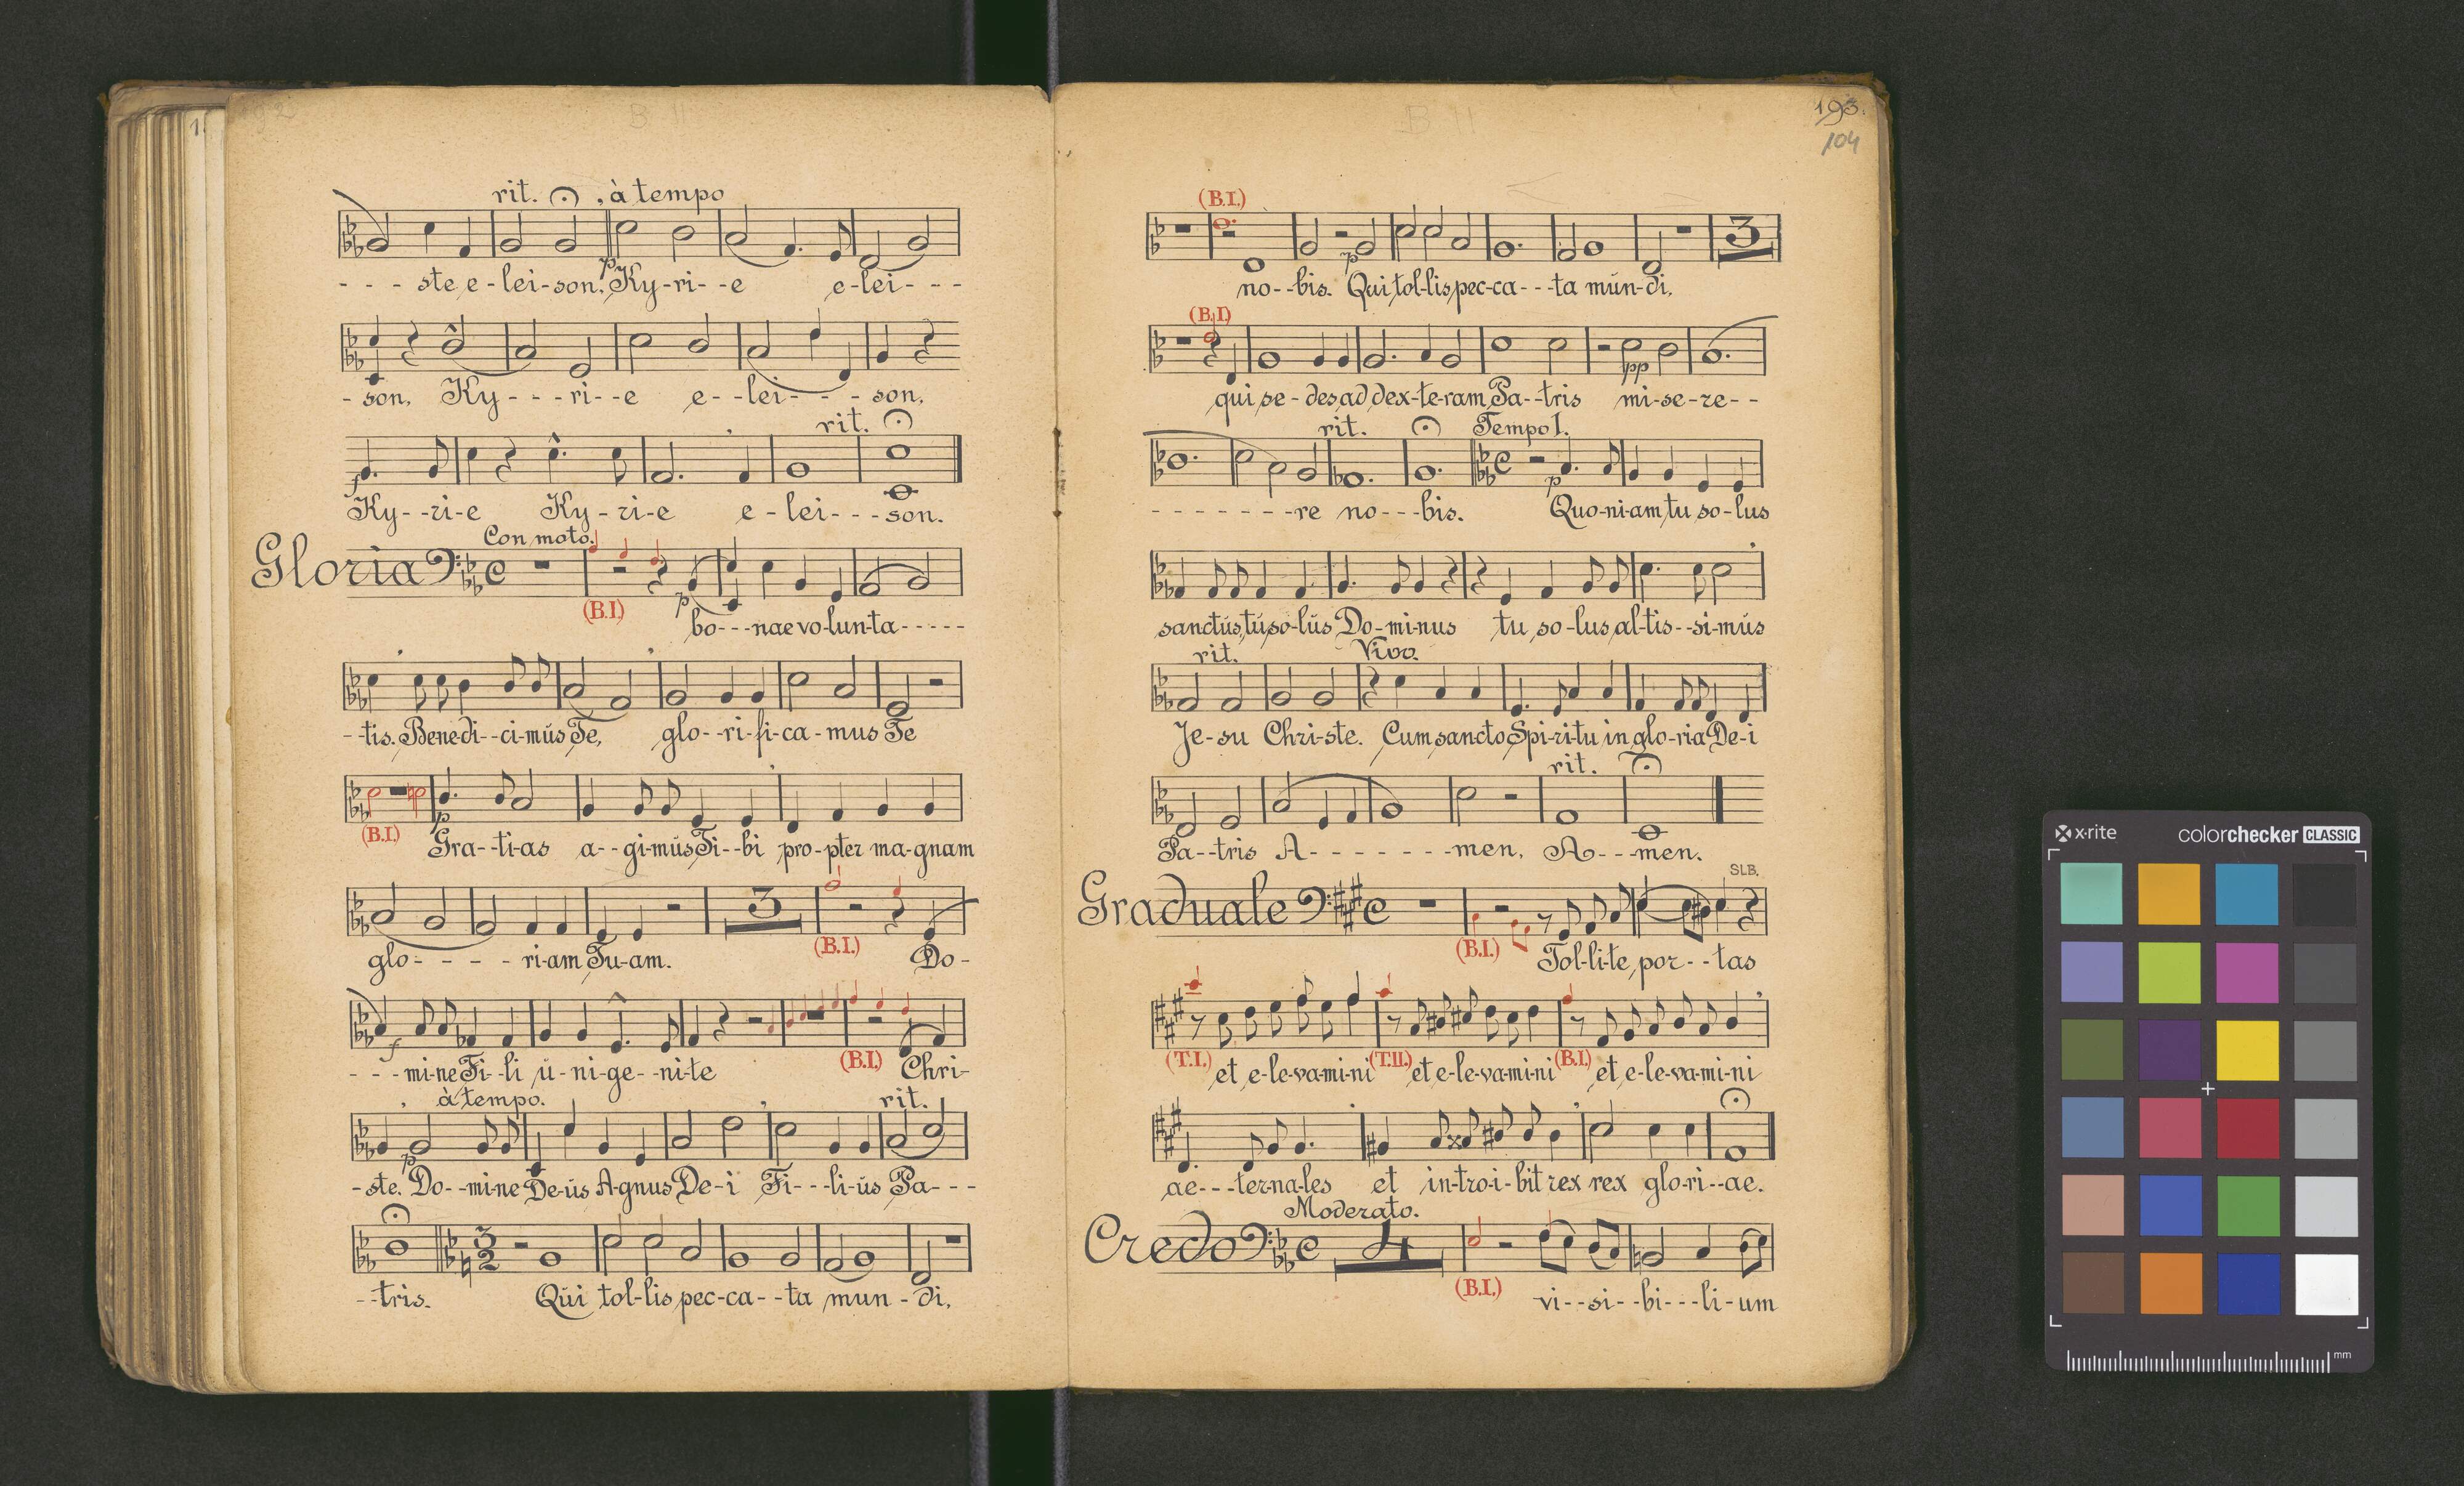 B II
rit. , à tempo
- - - ste e - lei - son. Ky - ri - - e e - lei - - -
p
- son, Ky - - - ri - - e e - - lei - - - son,
rit.
f
Ky - - ri - e Ky - ri - e e - lei - - - son.
Con moto.
Gloria
(B.I.)
p
bo - - - nae vo - lun - ta - - - - -
- - tis. Bene - di - - ci - mus Te, glo - - ri - fi - ca - mus Te
(B.I.)
p
Gra - - ti - as a - - gi - mus Ti - - bi pro - pter ma - gnam
3
(B.I.)
glo - - - - - ri - am Tu - am. Do -
f
(B.I.)
- - - mi - ne Fi - - li u - ni - ge - - ni - te Chri -
à tempo. rit.
p
- ste. Do - - mi - ne De - us A - gnus De - i Fi - - - li - us Pa - - -
3
2
- - tris. Qui tol - lis pec - ca - - ta mun - di,
193.
104
B II
(B.I.)
3
p
no - - bis. Qui tol - lis pec - ca - - - ta mun - di,
(B.I)
pp
qui se - des ad dex - te - ram Pa - - tris mi - se - re - -
rit. Tempo I.
p
- - - - - - - re no - - - bis. Quo - ni - am tu so - lus
sanctus, tu so - lus Do - mi - nus tu so - lus al - tis - - si - mus
rit. Vivo.
Je - su Chri - ste. Cum sancto Spi - ri - tu in glo - ria De - i
rit.
Pa - - tris A - - - - - - - men, A - - - men.
SLB.
Graduale
(B.I.)
Tol - li - te por - - tas
(T.I.) (T.II.) (B.I.)
et e - le - va - mi - ni et e - le - va - mi - ni et e - le - va - mi - ni
ae - - - ter - na - les et in - tro - i - bit rex rex glo - ri - - ae.
Moderato.
Credo
4
(B.I.)
vi - - si - - bi - - - li - um
x·rite colorchecker CLASSIC
mm